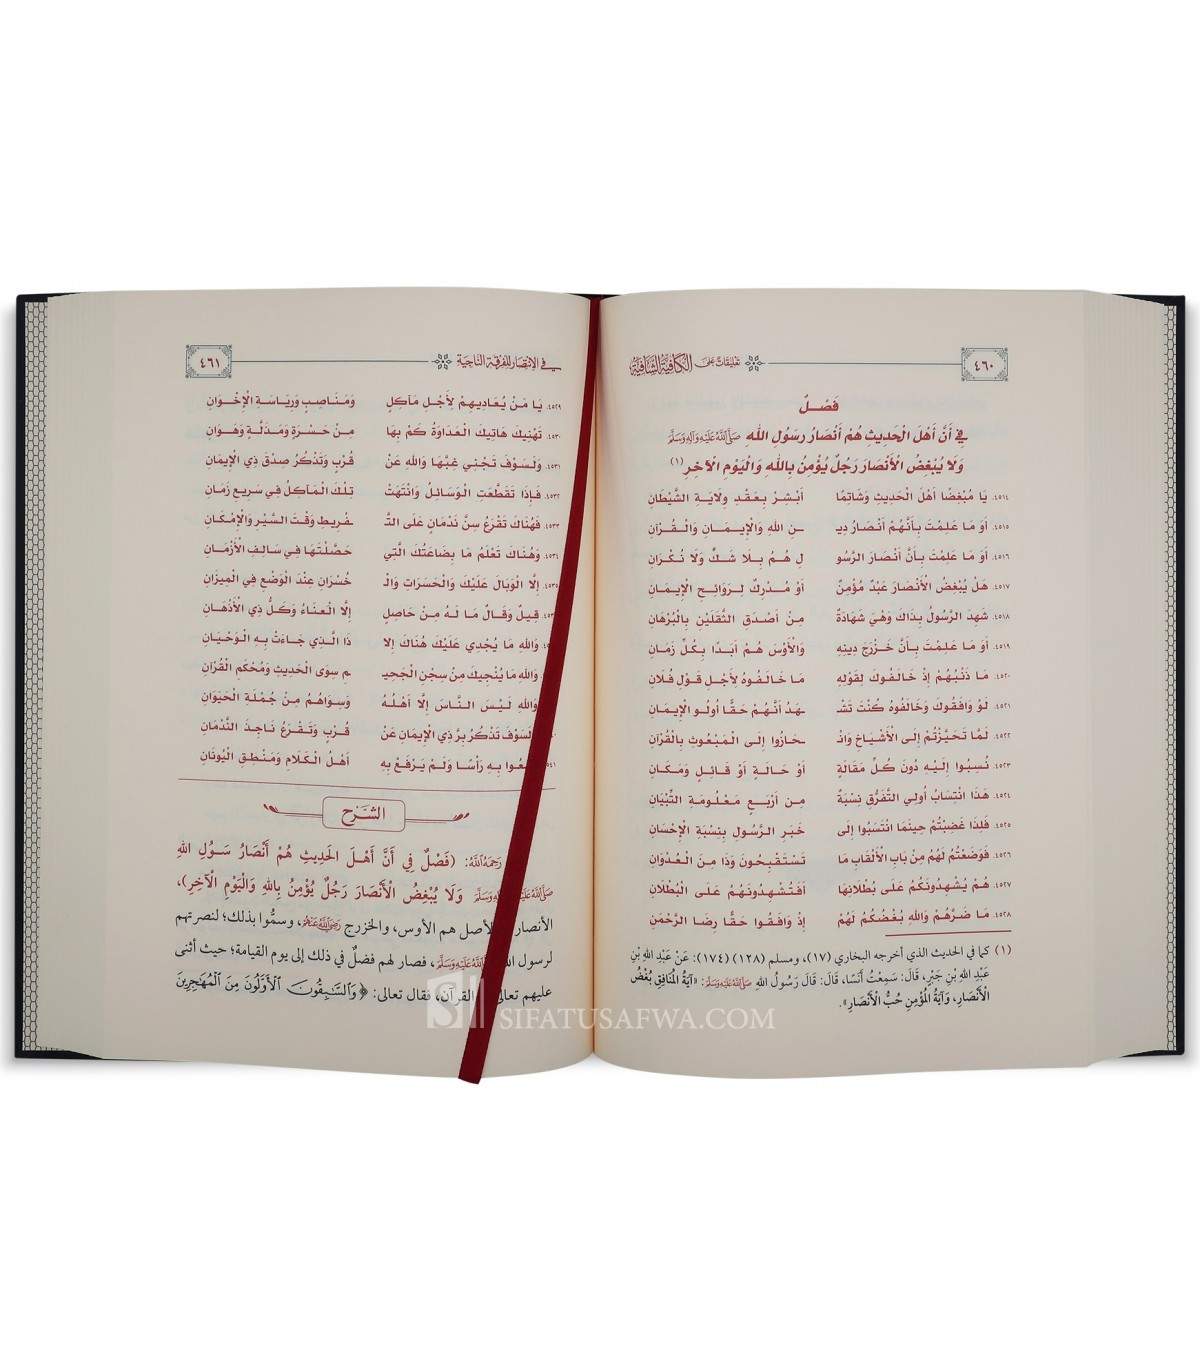 ٤٦٠ تعليقات على الكافية الشافية
فَصْلٌ
فِي أَنَّ أَهْلَ الْحَدِيثِ هُمْ أَنْصَارُ رَسُولِ اللهِ صَلَّى اللَّهُ عَلَيْهِ وَآلِهِ وَسَلَّمَ
وَلَا يُبْغِضُ الْأَنْصَارَ رَجُلٌ يُؤْمِنُ بِاللهِ وَالْيَوْمِ الْآخِرِ (١)
٤٥١٤. يَا مُبْغِضًا أَهْلَ الْحَدِيثِ وَشَاتِمًا أَبْشِرْ بِعَقْدِ وِلَايَةِ الشَّيْطَانِ
٤٥١٥. أَوَ مَا عَلِمْتَ بِأَنَّهُمْ أَنْصَارُ دِيـ ـنِ اللهِ وَالْإِيـمَـانِ وَالْـقُـرْآنِ
٤٥١٦. أَوَ مَا عَلِمْتَ بِأَنَّ أَنْصَارَ الرَّسُو لِ هُمُ بِلَا شَكٍّ وَلَا نُكْرَانِ
٤٥١٧. هَلْ يُبْغِضُ الْأَنْصَارَ عَبْدٌ مُؤْمِنٌ أَوْ مُدْرِكٌ لِرَوَائِحِ الْإِيمَانِ
٤٥١٨. شَهِدَ الرَّسُولُ بِذَاكَ وَهْيَ شَهَادَةٌ مِنْ أَصْدَقِ الثَّقَلَيْنِ بِالْبُرْهَانِ
٤٥١٩. أَوَ مَا عَلِمْتَ بِأَنَّ خَزْرَجَ دِينِهِ وَالْأَوْسَ هُمْ أَبَدًا بِكُلِّ زَمَانِ
٤٥٢٠. مَا ذَنْبُهُمْ إِذْ خَالَفُوكَ لِقَوْلِهِ مَا خَالَفُوهُ لِأَجْلِ قَوْلِ فُلَانِ
٤٥٢١. لَوْ وَافَقُوكَ وَخَالَفُوهُ كُنْتَ تَشْـ ـهَدُ أَنَّهُمْ حَقًّا أُولُو الْإِيمَانِ
٤٥٢٢. لَمَّا تَحَيَّزْتُمْ إِلَى الْأَشْيَاخِ وَانْـ ـحَازُوا إِلَى الْمَبْعُوثِ بِالْقُرْآنِ
٤٥٢٣. نُسِبُوا إِلَيْهِ دُونَ كُلِّ مَقَالَةٍ أَوْ حَالَةٍ أَوْ قَائِلٍ وَمَكَانِ
٤٥٢٤. هَذَا انْتِسَابُ أُولِي التَّفَرُّقِ نِسْبَةً مِن أَرْبَعٍ مَعْلُومَةِ التِّبْيَانِ
٤٥٢٥. فَلِذَا غَضِبْتُمْ حِينَمَا انْتَسَبُوا إِلَى خَبَرِ الرَّسُولِ بِنِسْبَةِ الْإِحْسَانِ
٤٥٢٦. فَوَضَعْتُمُ لَهُمُ مِنَ الْأَلْقَابِ مَا تَسْتَقْبِحُونَ وَذَا مِنَ الْعُدْوَانِ
٤٥٢٧. هُمْ يُشْهِدُونَكُمُ عَلَى بُطْلَانِهَا أَفَتُشْهِدُونَهُمُ عَلَى الْبُطْلَانِ
٤٥٢٨. مَا ضَرَّهُمْ وَاللهِ بُغْضُكُمُ لَهُمْ إِذْ وَافَقُوا حَقًّا رِضَا الرَّحْمَنِ
(١) كما في الحديث الذي أخرجه البخاري (١٧)، ومسلم (١٢٨) (١٧٤): عَنْ عَبْدِ اللهِ بْنِ
عَبْدِ اللهِ بْنِ جَبْرٍ، قَالَ: سَمِعْتُ أَنَسًا، قَالَ: قَالَ رَسُولُ اللهِ صَلَّى اللَّهُ عَلَيْهِ وَسَلَّمَ: «آيَةُ الْمُنَافِقِ بُغْضُ
الْأَنْصَارِ، وَآيَةُ الْمُؤْمِنِ حُبُّ الْأَنْصَارِ».
في الانتصار للفرقة الناجية ٤٦١
٤٥٢٩. يَا مَنْ يُعَادِيهِمْ لِأَجْلِ مَآكِلٍ وَمَنَاصِبٍ وَرِيَاسَةِ الْإِخْوَانِ
٤٥٣٠. تَهْنِيكَ هَاتِيكَ الْعَدَاوَةُ كَمْ بِهَا مِنْ حَسْرَةٍ وَمَذَلَّةٍ وَهَوَانِ
٤٥٣١. وَلَسَوْفَ تَجْنِي غِبَّهَا وَاللهِ عَنْ قُرْبٍ وَتَذْكُرُ صِدْقَ ذِي الْإِيمَانِ
٤٥٣٢. فَإِذَا تَقَطَّعَتِ الْوَسَائِلُ وَانْتَهَتْ تِلْكَ الْمَآكِلُ فِي سَرِيعِ زَمَانِ
٤٥٣٣. فَهُنَاكَ تَقْرَعُ سِنَّ نَدْمَانٍ عَلَى التَّـ ـفْرِيطِ وَقْتَ السَّيْرِ وَالْإِمْكَانِ
٤٥٣٤. وَهُنَاكَ تَعْلَمُ مَا بِضَاعَتُكَ الَّتِي حَصَّلْتَهَا فِي سَالِفِ الْأَزْمَانِ
٤٥٣٥. إِلَّا الْوَبَالَ عَلَيْكَ وَالْحَسَرَاتِ وَالْـ ـخُسْرَانِ عِنْدَ الْوَضْعِ فِي الْمِيزَانِ
قِيلٌ وَقَالٌ مَا لَهُ مِنْ حَاصِلٍ إِلَّا الْعَنَاءُ وَكَلُّ ذِي الْأَذْهَانِ
وَاللهِ مَا يُجْدِي عَلَيْكَ هُنَاكَ إِلَّا ذَا الَّذِي جَاءَتْ بِهِ الْوَحْيَانِ
وَاللهِ مَا يُنْجِيكَ مِنْ سِجْنِ الْجَحِيـ ـمِ سِوَى الْحَدِيثِ وَمُحْكَمِ الْقُرْآنِ
وَاللهِ لَيْسَ النَّاسَ إِلَّا أَهْلُهُ وَسِوَاهُمُ مِنْ جُمْلَةِ الْحَيَوَانِ
لَسَوْفَ تَذْكُرُ بِرَّ ذِي الْإِيمَانِ عَنْ قُرْبٍ وَتَقْرَعُ نَاجِذَ النَّدْمَانِ
بِهِ رَأْسًا وَلَمْ يَرْفَعْ بِهِ أَهْلُ الْكَلَامِ وَمَنْطِقِ الْيُونَانِ
الشرح
رَحِمَهُ اللَّهُ: (فَصْلٌ فِي أَنَّ أَهْلَ الْحَدِيثِ هُمْ أَنْصَارُ رَسُولِ اللهِ
صَلَّى اللَّهُ عَلَيْهِ وَسَلَّمَ وَلَا يُبْغِضُ الْأَنْصَارَ رَجُلٌ يُؤْمِنُ بِاللهِ وَالْيَوْمِ الْآخِرِ)،
الأنصار الأصل هم الأوس، والخزرج رَضِيَ اللَّهُ عَنْهُمْ، وسمُّوا بذلك؛ لنصرتهم
لرسول الله صَلَّى اللَّهُ عَلَيْهِ وَسَلَّمَ، فصار لهم فضلٌ في ذلك إلى يوم القيامة؛ حيث أثنى
عليهم تعالى القرآن، فقال تعالى: ﴿وَالسَّابِقُونَ الْأَوَّلُونَ مِنَ الْمُهَاجِرِينَ
SIFATUSAFWA.COM